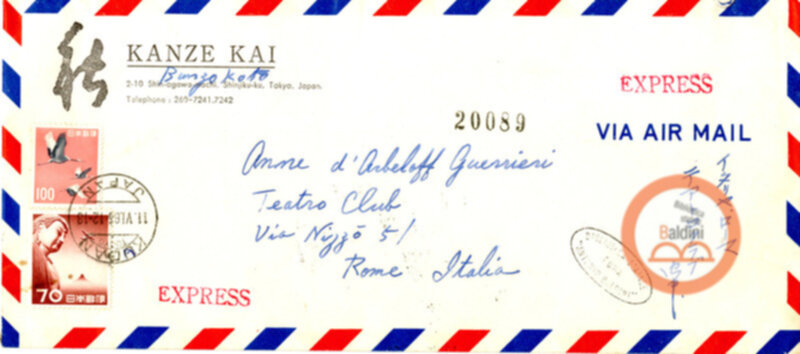 能
KANZE KAI
Bunzo Kato
2-10 Shin-ogawa-machi, Shinjiku-ku, Tokyo, Japan.
Telephone : 260-7241, 7242
EXPRESS
20089
VIA AIR MAIL
日本郵便
100
JAPAN
11.VI.
70 日本郵便
Anne d'Arbeloff Guerrieri
Teatro Club
Via Nizzō 51
Rome Italia
EXPRESS
Baldini